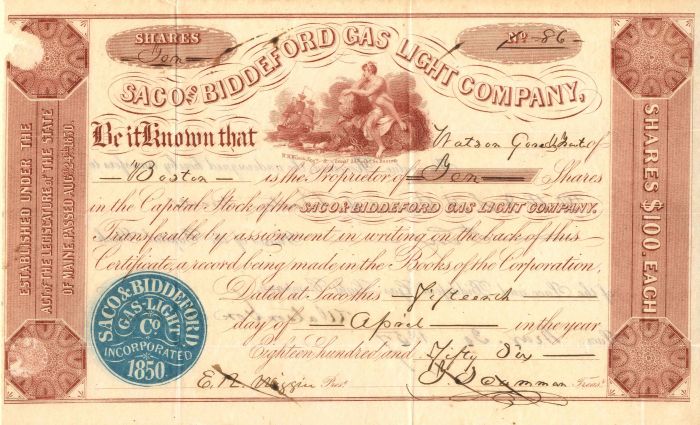 SHARES
Ten
No. 86
SACO AND BIDDEFORD GAS LIGHT COMPANY,
Be it Known that Watson Gore of
Boston is the Proprietor of Ten Shares
in the Capital Stock of the SACO & BIDDEFORD GAS LIGHT COMPANY.
Transferable by assignment in writing on the back of this
Certificate, a record being made in the Books of the Corporation.
Dated at Saco this Fifteenth
day of April in the year
Eighteen hundred and Fifty Six
E. R. Wiggin Prest.
Scamman Treasr.
ESTABLISHED UNDER THE
ACT OF THE LEGISLATURE OF THE STATE
OF MAINE, PASSED AUGT. 24TH 1850.
SHARES $100. EACH
SACO & BIDDEFORD
GAS-LIGHT
Co
INCORPORATED
1850